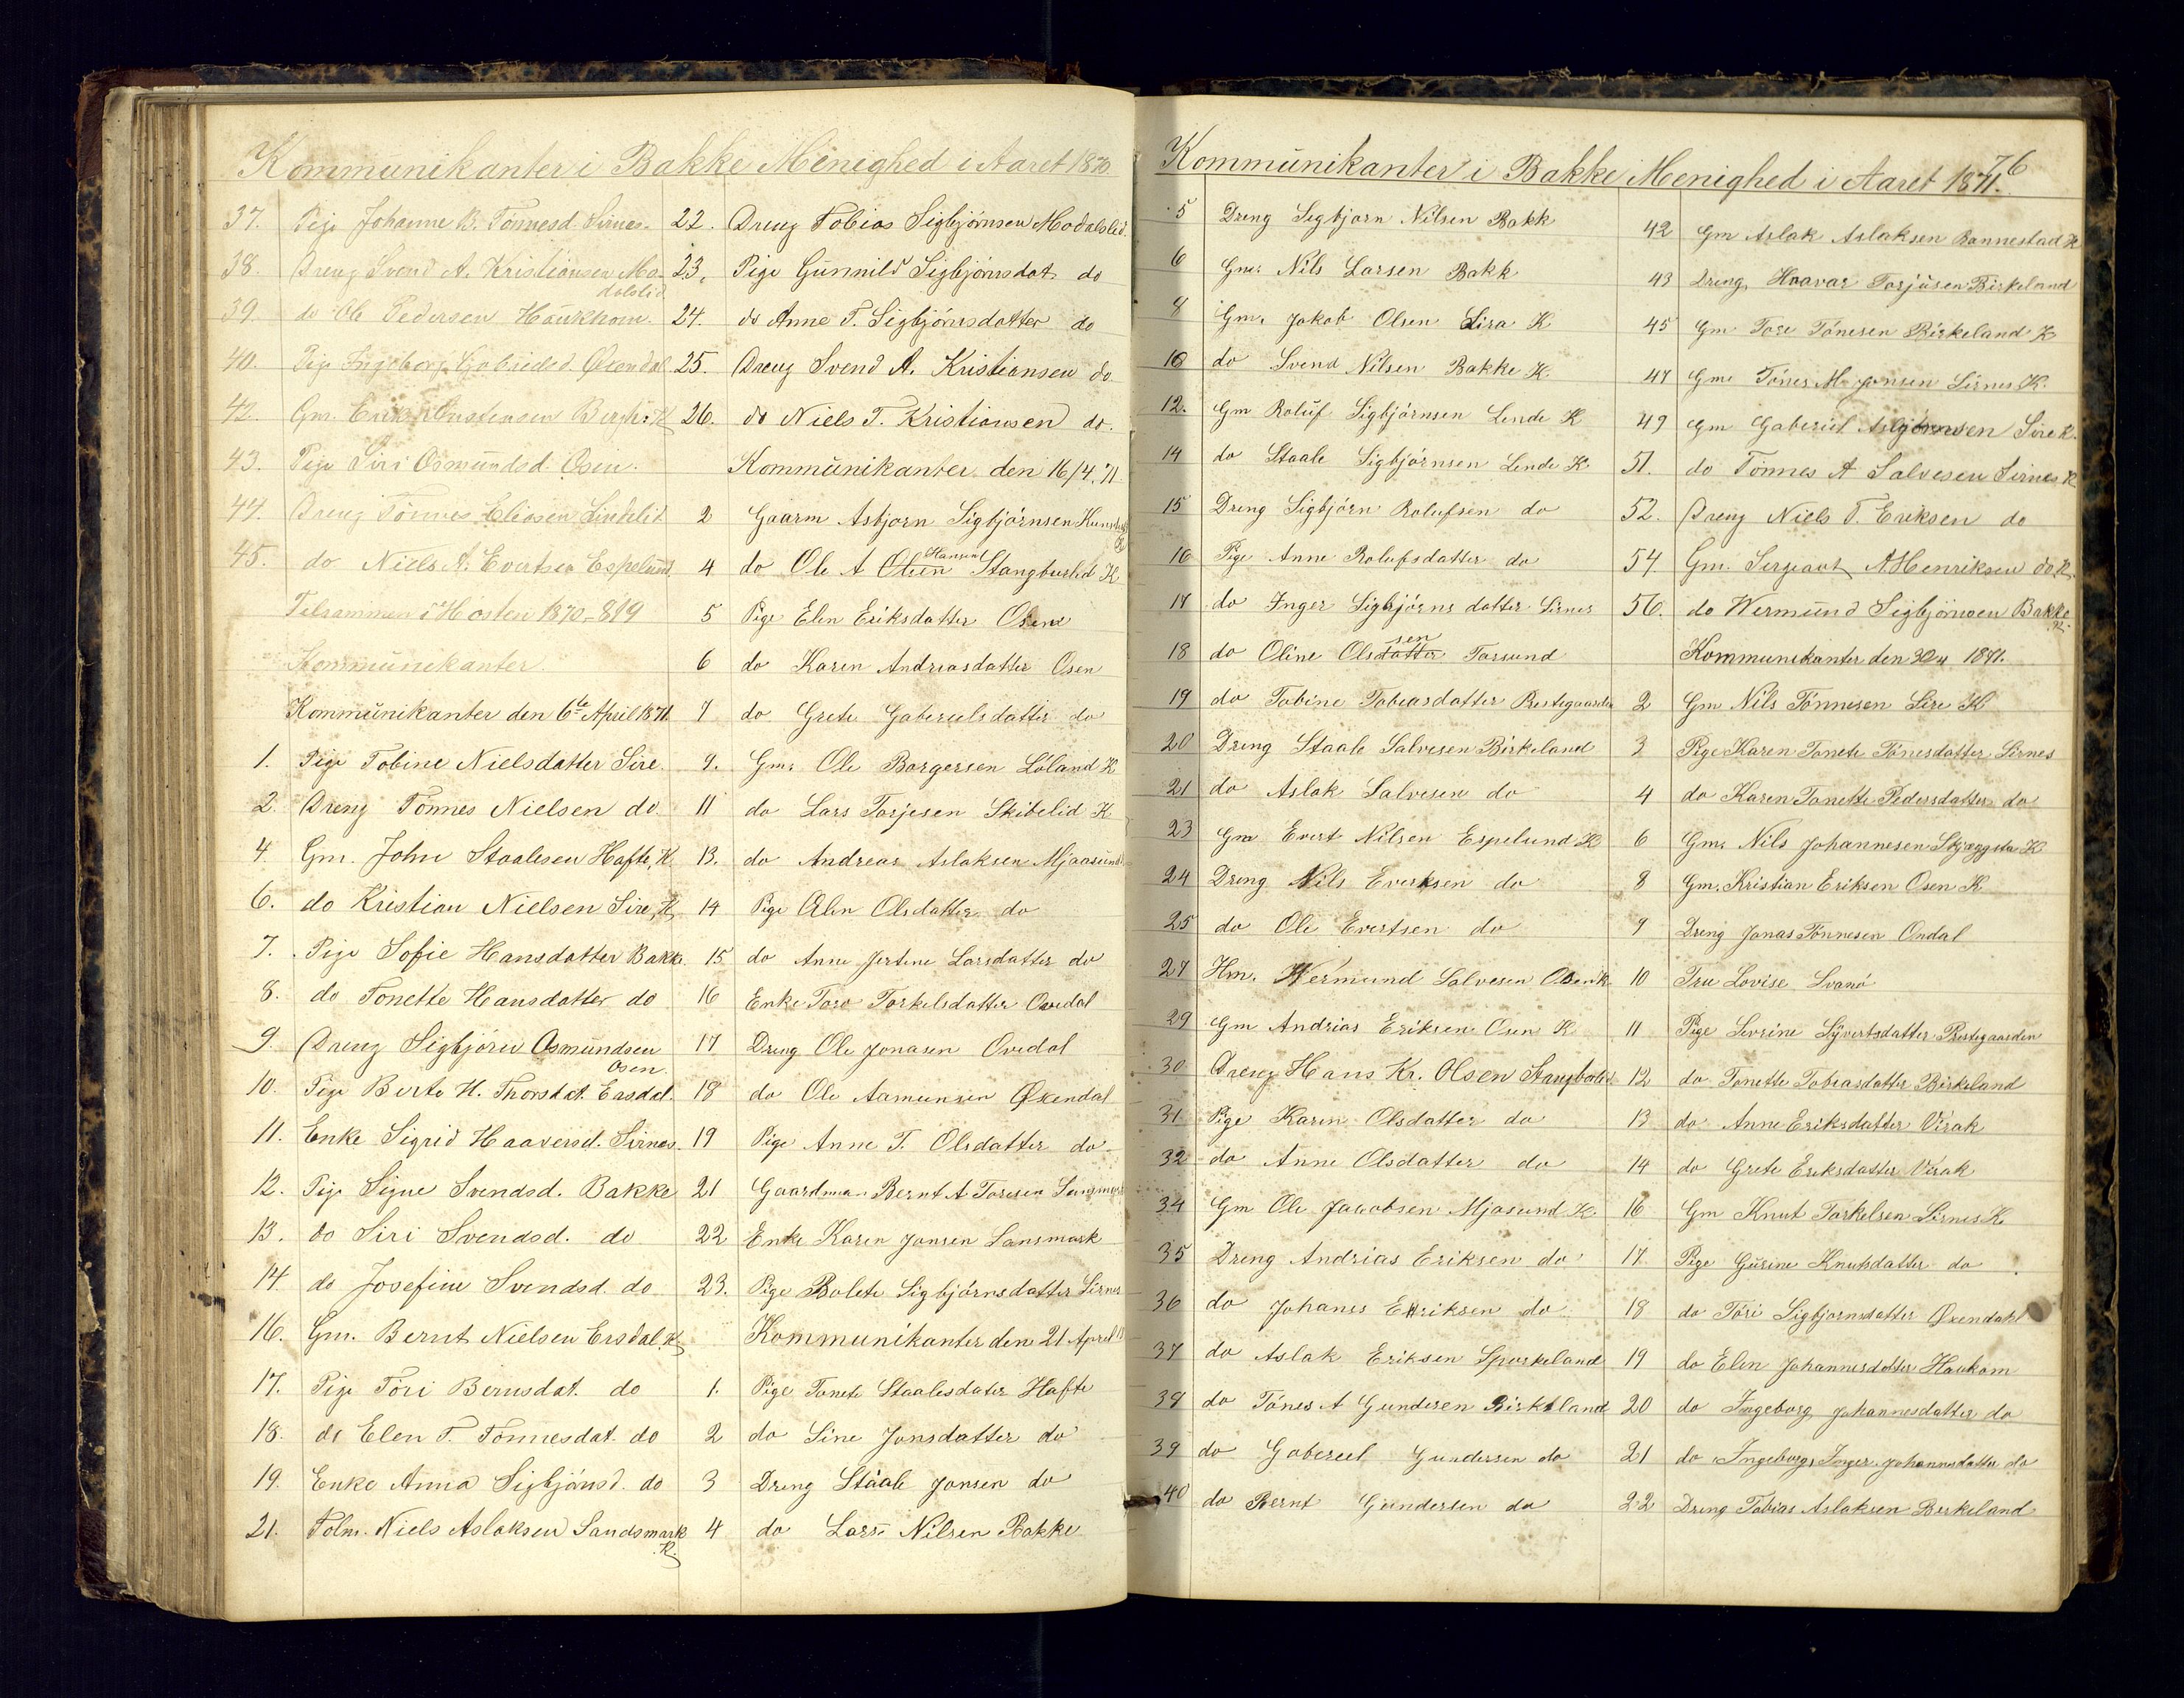 Kommunikanter i Bakke Menighed i Aaret 1870.
37. Pige Johanne B. Tønnesd. Sirnes.
38. Dreng Svend A. Kristiansen Mo-
dalslid
39. do Ole Pedersen Haukhom.
40. Pige Ingeborg Gabrielsd. Øxendal
42. Gm. Enk Ousteinsen K
43. Pige Siri Osmundsd. Osen.
44. Dreng Tønnes Eliasen Linhlid
45. do Niels A. Evertsen Espelund
Tilsammen i Høsten 1870 - 819
Kommunikanter.
Kommunikanter den 6te April 1871.
1. Pige Tobine Nielsdatter Sire.
2. Dreng Tønnes Nielsen do.
4. Gm. John Staalesen Hafte, K
6. do Kristian Nielsen Sire, K
7. Pige Sofie Hansdatter Bakke
8. do Tonette Hansdatter do
9. Dreng Sigbjørn Osmundsen
Osen.
10. Pige Berte H. Thorsdat. Ersdal.
11. Enke Sigrid Haaversd. Sirnes.
12. Pige Signe Svendsd. Bakke
13. do Siri Svendsd. do
14. do Josefine Svendsd. do
16. Gm. Bernt Nielsen Ersdal. K
17. Pige Töri Bernsdat. do
18. do Elen T. Tönnesdat. do
19. Enke Anna Sigbjønsd. do
21. Tolm. Niels Aslaksen Sandsmark
K.
22. Dreng Tobias Sigbjörnsen Modalslid.
23. Pige Gunnild Sigbjörnsdat. do
24. do Anne T. Sigbjörnsdatter do
25. Dreng Svend A. Kristiansen do.
26. do Niels T. Kristiansen do.
Kommunikanter den 16/4. 71.
2 Gaarm Asbjorn Sigbjörnsen
4 do Ole A Olsen Hansen Stangborlid K
5 Pige Elen Eriksdatter Osen
6 do Karen Andreasdatter Osen
7 do Grete Gaberielsdatter do
9. Gm. Ole Borgersen Löland K
11 do Lars Torjesen Skibelid K
13. do Andreas Aslaksen Mjaasund
14 Pige Elen Olsdatter do
15 do Anne Jertine Larsdatter do
16 Enke Toro Torkelsdatter Ovedal
17 Dreng Ole Jonasen Ovedal
18 do Ole Aamunsen Øxendal
19 Pige Anne T. Olsdatter do
21 Gaardman Bernt A Toresen
22 Enke Karen Jonsen Sansmark
23. Pige Bolete Sigbjörnsdatter Sirnes
Kommunikanter den 21 April
1. Pige Tonete Staalesdater Hafte
2 do Sine Jonsdatter do
3 Dreng Staale Jonsen do
4 do Lars Nilsen Bakke
Kommunikanter i Bakke Menighed i Aaret 1871.
76
5 Dreng Segbjorn Nilsen Bakk
6 Gm. Nils Larsen Bakk
8 Gm. Jakob Olsen Sira K
10 do Svend Nilsen Bakke K.
12. Gm Roluf Sigbjörnsen Lende K
14 do Staale Sigbjörnsen Lende K
15 Dreng Sigbjörn Rolufsen do
16 Pige Anne Rolufsdatter do
17 do Inger Sigbjörns datter Sirnes
18 do Oline Olsdatter sen Tarsund
19 do Tobine Tobiasdatter Prestegaarden
20 Dreng Staale Salvesen Birkeland
21 do Aslak Salvesen do
23 Gm Evert Nilsen Espelund K
24 Dreng Nils Evertsen do
25 do Ole Evertsen do
27 Hm. Wermund Salvesen Osen K
29 Gm Andrias Eriksen Osen K
30 Dreng Hans Kr. Olsen Stangborlid
31 Pige Karen Olsdatter do
32 do Anne Olsdatter do
34 Gm Ole Jacobsen Mjasund K
35 Dreng Andrias Eriksen do
36 do Johanes Eriksen do
37 do Aslak Eriksen Sporkeland
39 do Tönes A Gundersen Birkeland
39 do Gabereel Gundersen do
40 do Bernt Gundersen do
42 Gm Aslak Aslaksen Rannestad K
43 Dreng Haavar Torjusen Birkeland
45 Gm Tore Tönesen Birkeland K
47 Gm. Tönes M. Jonsen Sirnes K.
49 Gm Gaberiel Asbjørnsen Sire K.
51. do Tönnes A Salvesen Sirnes K
52. Dreng Niels T. Eriksen do
54. Gm. Sergeant A Henriksen do. K.
56. do Wermund Sigbjörnsen Bakke
K.
Kommunikanter den 30/4 1871.
2 Gm Nils Tönnesen Sire K
3 Pige Karen Tonete Tönesdatter Sirnes
4 do Karen Tonette Pedersdatter do
6 Gm. Nils Johannesen Skjeggsta K
8 Gm. Kristian Eriksen Osen K
9 Dreng Jonas Tönnesen Ondal
10 Fru Lovise Svanö
11 Pige Sevrine Syvertsdatter Prestegaarden
12 do Tonette Tobiasdatter Birkeland
13 do Anne Eriksdatter Virak
14 do Grete Eriksdatter Virak
16 Gm Knut Torkelsen Sirnes K
17 Pige Gurine Knutsdatter do
18 do Töri Sigbjornsdatter Øxendahl
19 do Elen Johannesdatter Haukom
20 do Ingeborg Johannesdatter do
21 do Ingeborg Inger Johannesdatter do
22 Dreng Tobias Aslaksen Berkeland